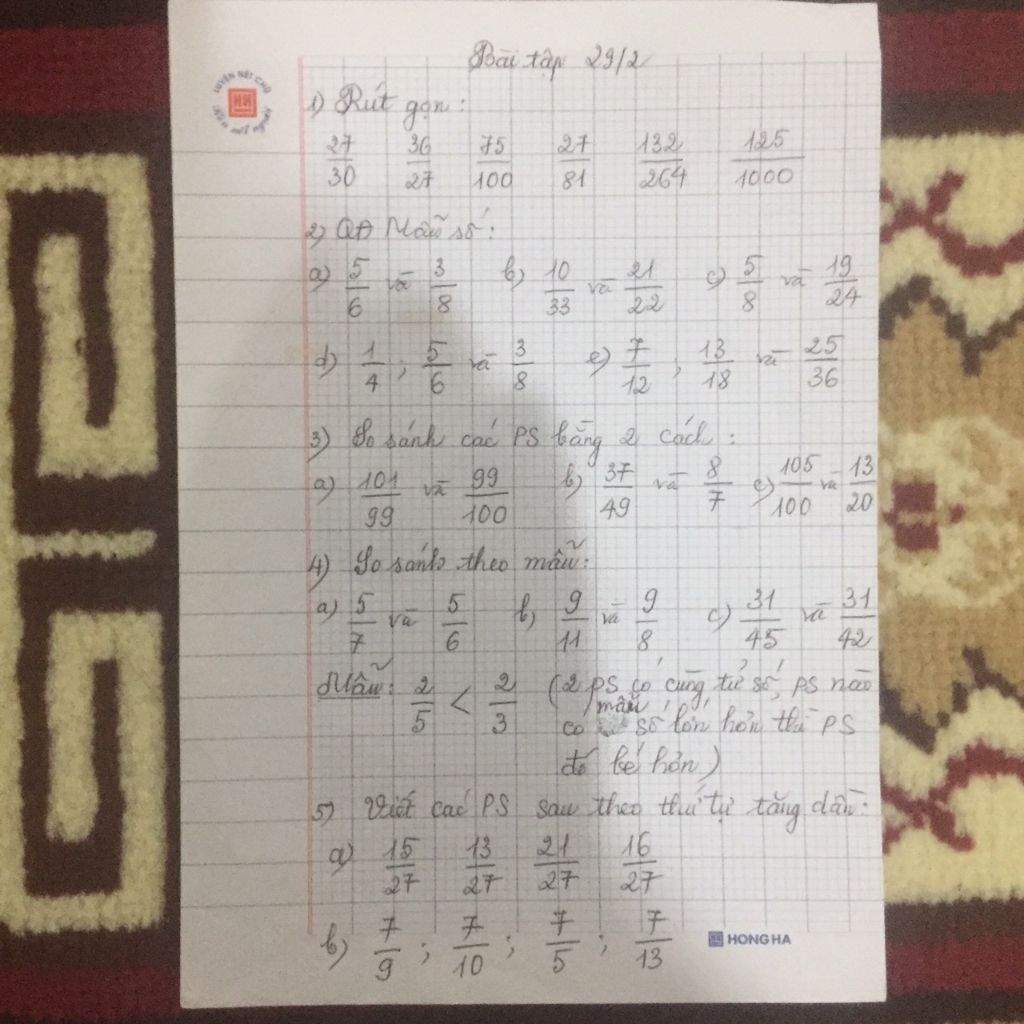 Bài tập 29/2
LUYỆN NÉT CHỮ
Rèn nết người
1) Rút gọn:
27/30 36/27 75/100 27/81 132/264 125/1000
2) QĐ Mẫu số:
a) 5/6 và 3/8 b) 10/33 và 21/22 c) 5/8 và 19/24
d) 1/4 ; 5/6 và 3/8 e) 7/12 , 13/18 và 25/36
3) So sánh các PS bằng 2 cách:
a) 101/99 và 99/100 b) 37/49 và 8/7 c) 105/100 và 13/20
4) So sánh theo mẫu:
a) 5/7 và 5/6 b) 9/11 và 9/8 c) 31/45 và 31/42
Mẫu: 2/5 < 2/3 (2 PS có cùng tử số, PS nào
có mẫu số lớn hơn thì PS
đó bé hơn)
5) Viết các PS sau theo thứ tự tăng dần:
a) 15/27 13/27 21/27 16/27
b) 7/9 ; 7/10 ; 7/5 ; 7/13
HONG HA